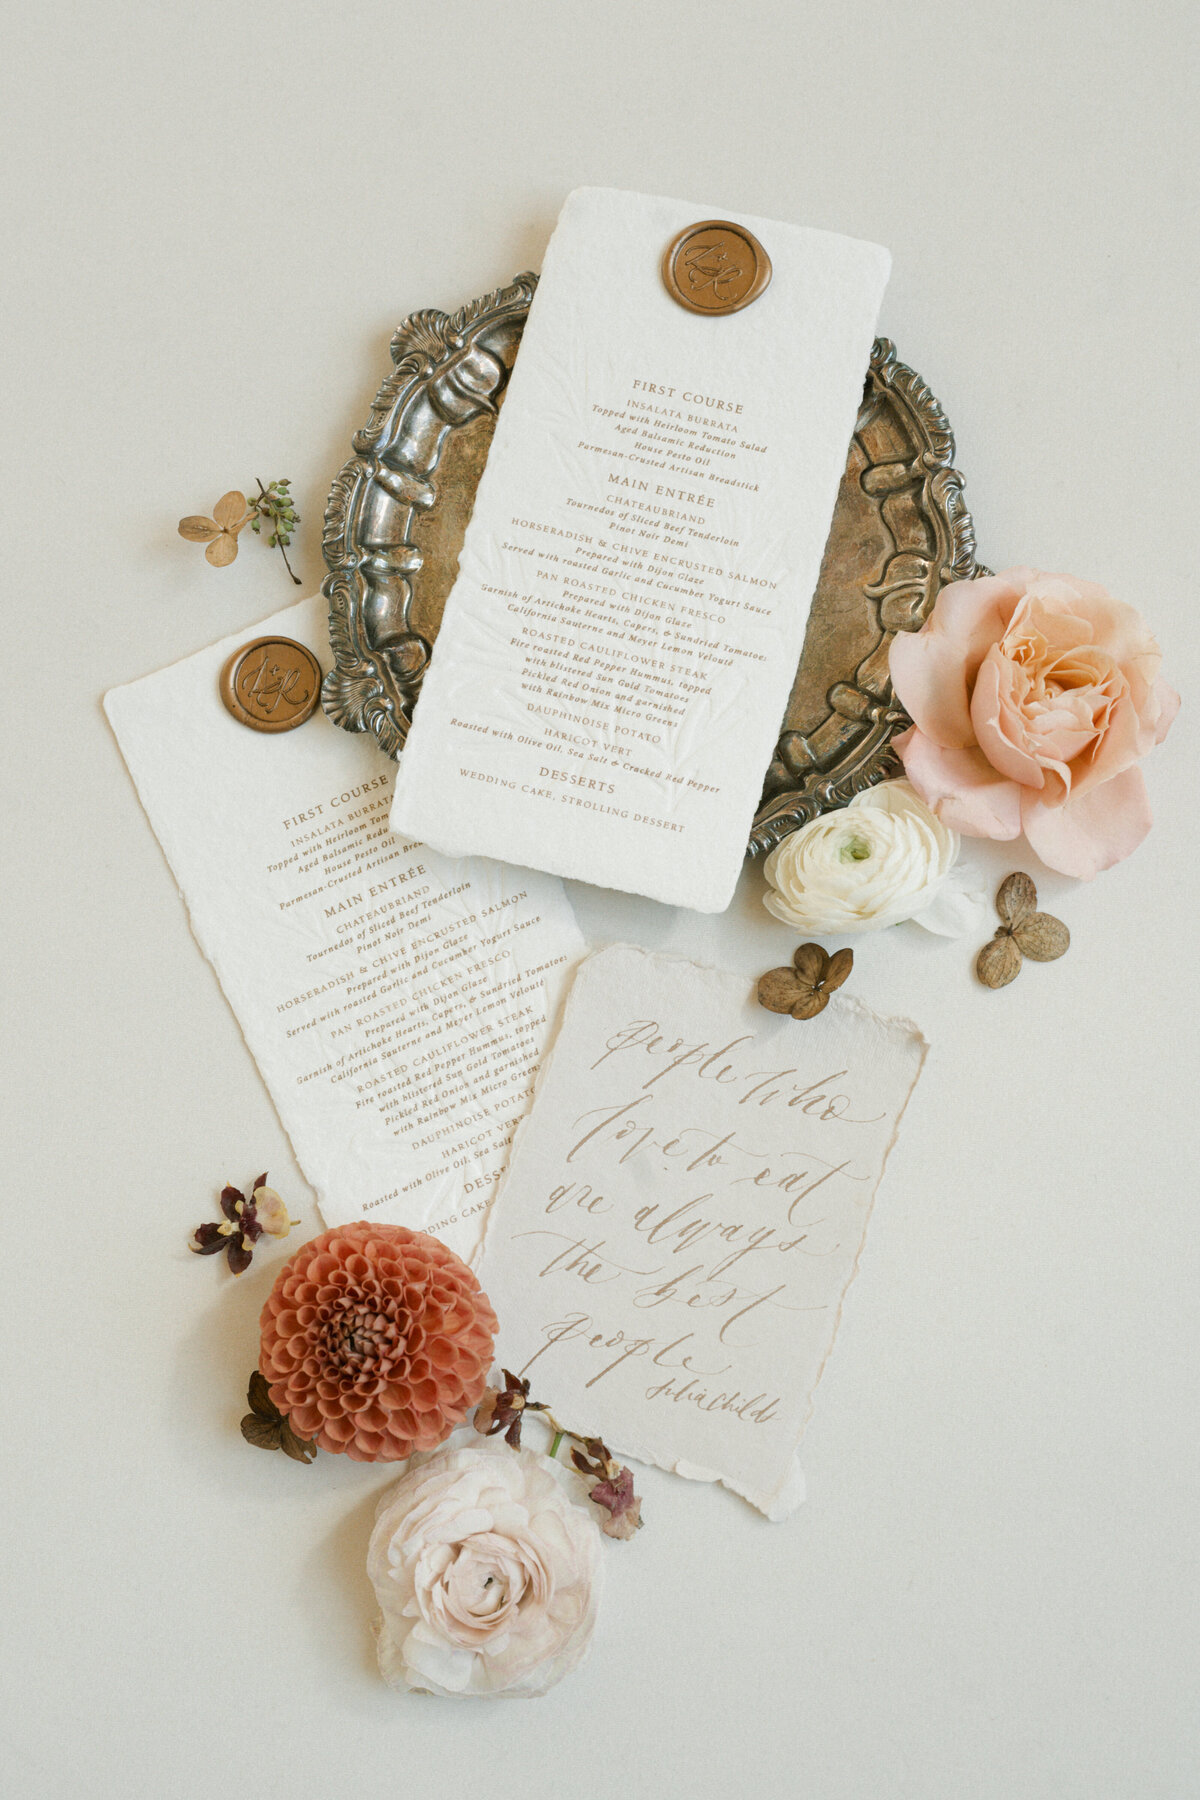 FIRST COURSE
INSALATA BURRATA
Topped with Heirloom Tomato Salad
Aged Balsamic Reduction
House Pesto Oil
Parmesan-Crusted Artisan Breadstick
MAIN ENTRÉE
CHATEAUBRIAND
Tournedos of Sliced Beef Tenderloin
Pinot Noir Demi
HORSERADISH & CHIVE ENCRUSTED SALMON
Prepared with Dijon Glaze
Served with roasted Garlic and Cucumber Yogurt Sauce
PAN ROASTED CHICKEN FRESCO
Prepared with Dijon Glaze
Garnish of Artichoke Hearts, Capers, & Sundried Tomatoe:
California Sauterne and Meyer Lemon Velouté
ROASTED CAULIFLOWER STEAK
Fire roasted Red Pepper Hummus, topped
with blistered Sun Gold Tomatoes
Pickled Red Onion and garnished
with Rainbow Mix Micro Greens
DAUPHINOISE POTATO
HARICOT VERT
Roasted with Olive Oil, Sea Salt & Cracked Red Pepper
DESSERTS
WEDDING CAKE, STROLLING DESSERT
FIRST COURSE
INSALATA BURRATA
Topped with Heirloom Tom
Aged Balsamic Redu
House Pesto Oil
Parmesan-Crusted Artisan Bre
MAIN ENTRÉE
CHATEAUBRIAND
Tournedos of Sliced Beef Tenderloin
Pinot Noir Demi
HORSERADISH & CHIVE ENCRUSTED SALMON
Prepared with Dijon Glaze
Served with roasted Garlic and Cucumber Yogurt Sauce
PAN ROASTED CHICKEN FRESCO
Prepared with Dijon Glaze
Garnish of Artichoke Hearts, Capers, & Sundried Tomatoe:
California Sauterne and Meyer Lemon Velouté
ROASTED CAULIFLOWER STEAK
Fire roasted Red Pepper Hummus, topped
with blistered Sun Gold Tomatoes
Pickled Red Onion and garnished
with Rainbow Mix Micro Green
DAUPHINOISE POTAT
HARICOT VERT
Roasted with Olive Oil, Sea Salt
DESSE
DDING CAKE
people who
love to eat
are always
the best
people
Julia Childs